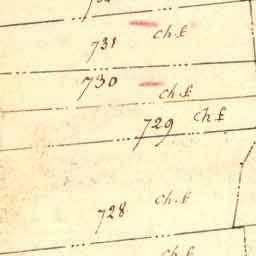 731 ch. £
730 ch. £
729 ch £
728 ch. £
ch. £